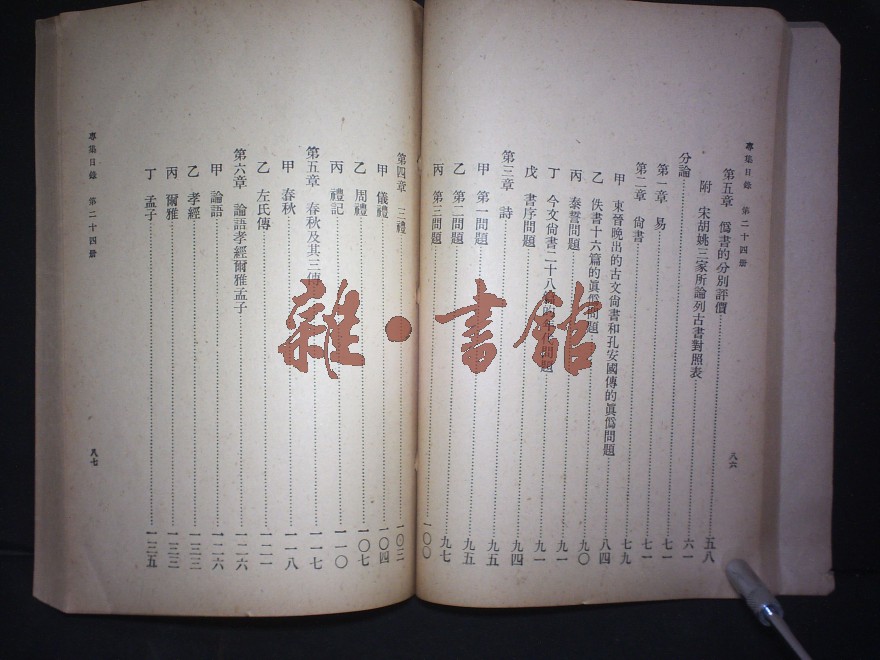 專集目錄 第二十四册 八六
第五章 僞書的分別評價 五八
附 宋胡姚三家所論列古書對照表 六一
分論 七一
第一章 易 七一
第二章 尙書 七九
甲 東晉晚出的古文尙書和孔安國傳的眞僞問題 八四
乙 佚書十六篇的眞僞問題 九〇
丙 泰誓問題 九一
丁 今文尙書二十八篇的年代問題 九一
戊 書序問題 九四
第三章 詩 九五
甲 第一問題 九五
乙 第二問題 九七
丙 第三問題 一〇〇
第四章 三禮 一〇三
甲 儀禮 一〇四
乙 周禮 一〇七
丙 禮記 一一〇
第五章 春秋及其三傳 一一七
甲 春秋 一一八
乙 左氏傳 一二一
第六章 論語孝經爾雅孟子 一二六
甲 論語 一二六
乙 孝經 一三三
丙 爾雅 一三三
丁 孟子 一三五
專集目錄 第二十四册 八七
雜·書館